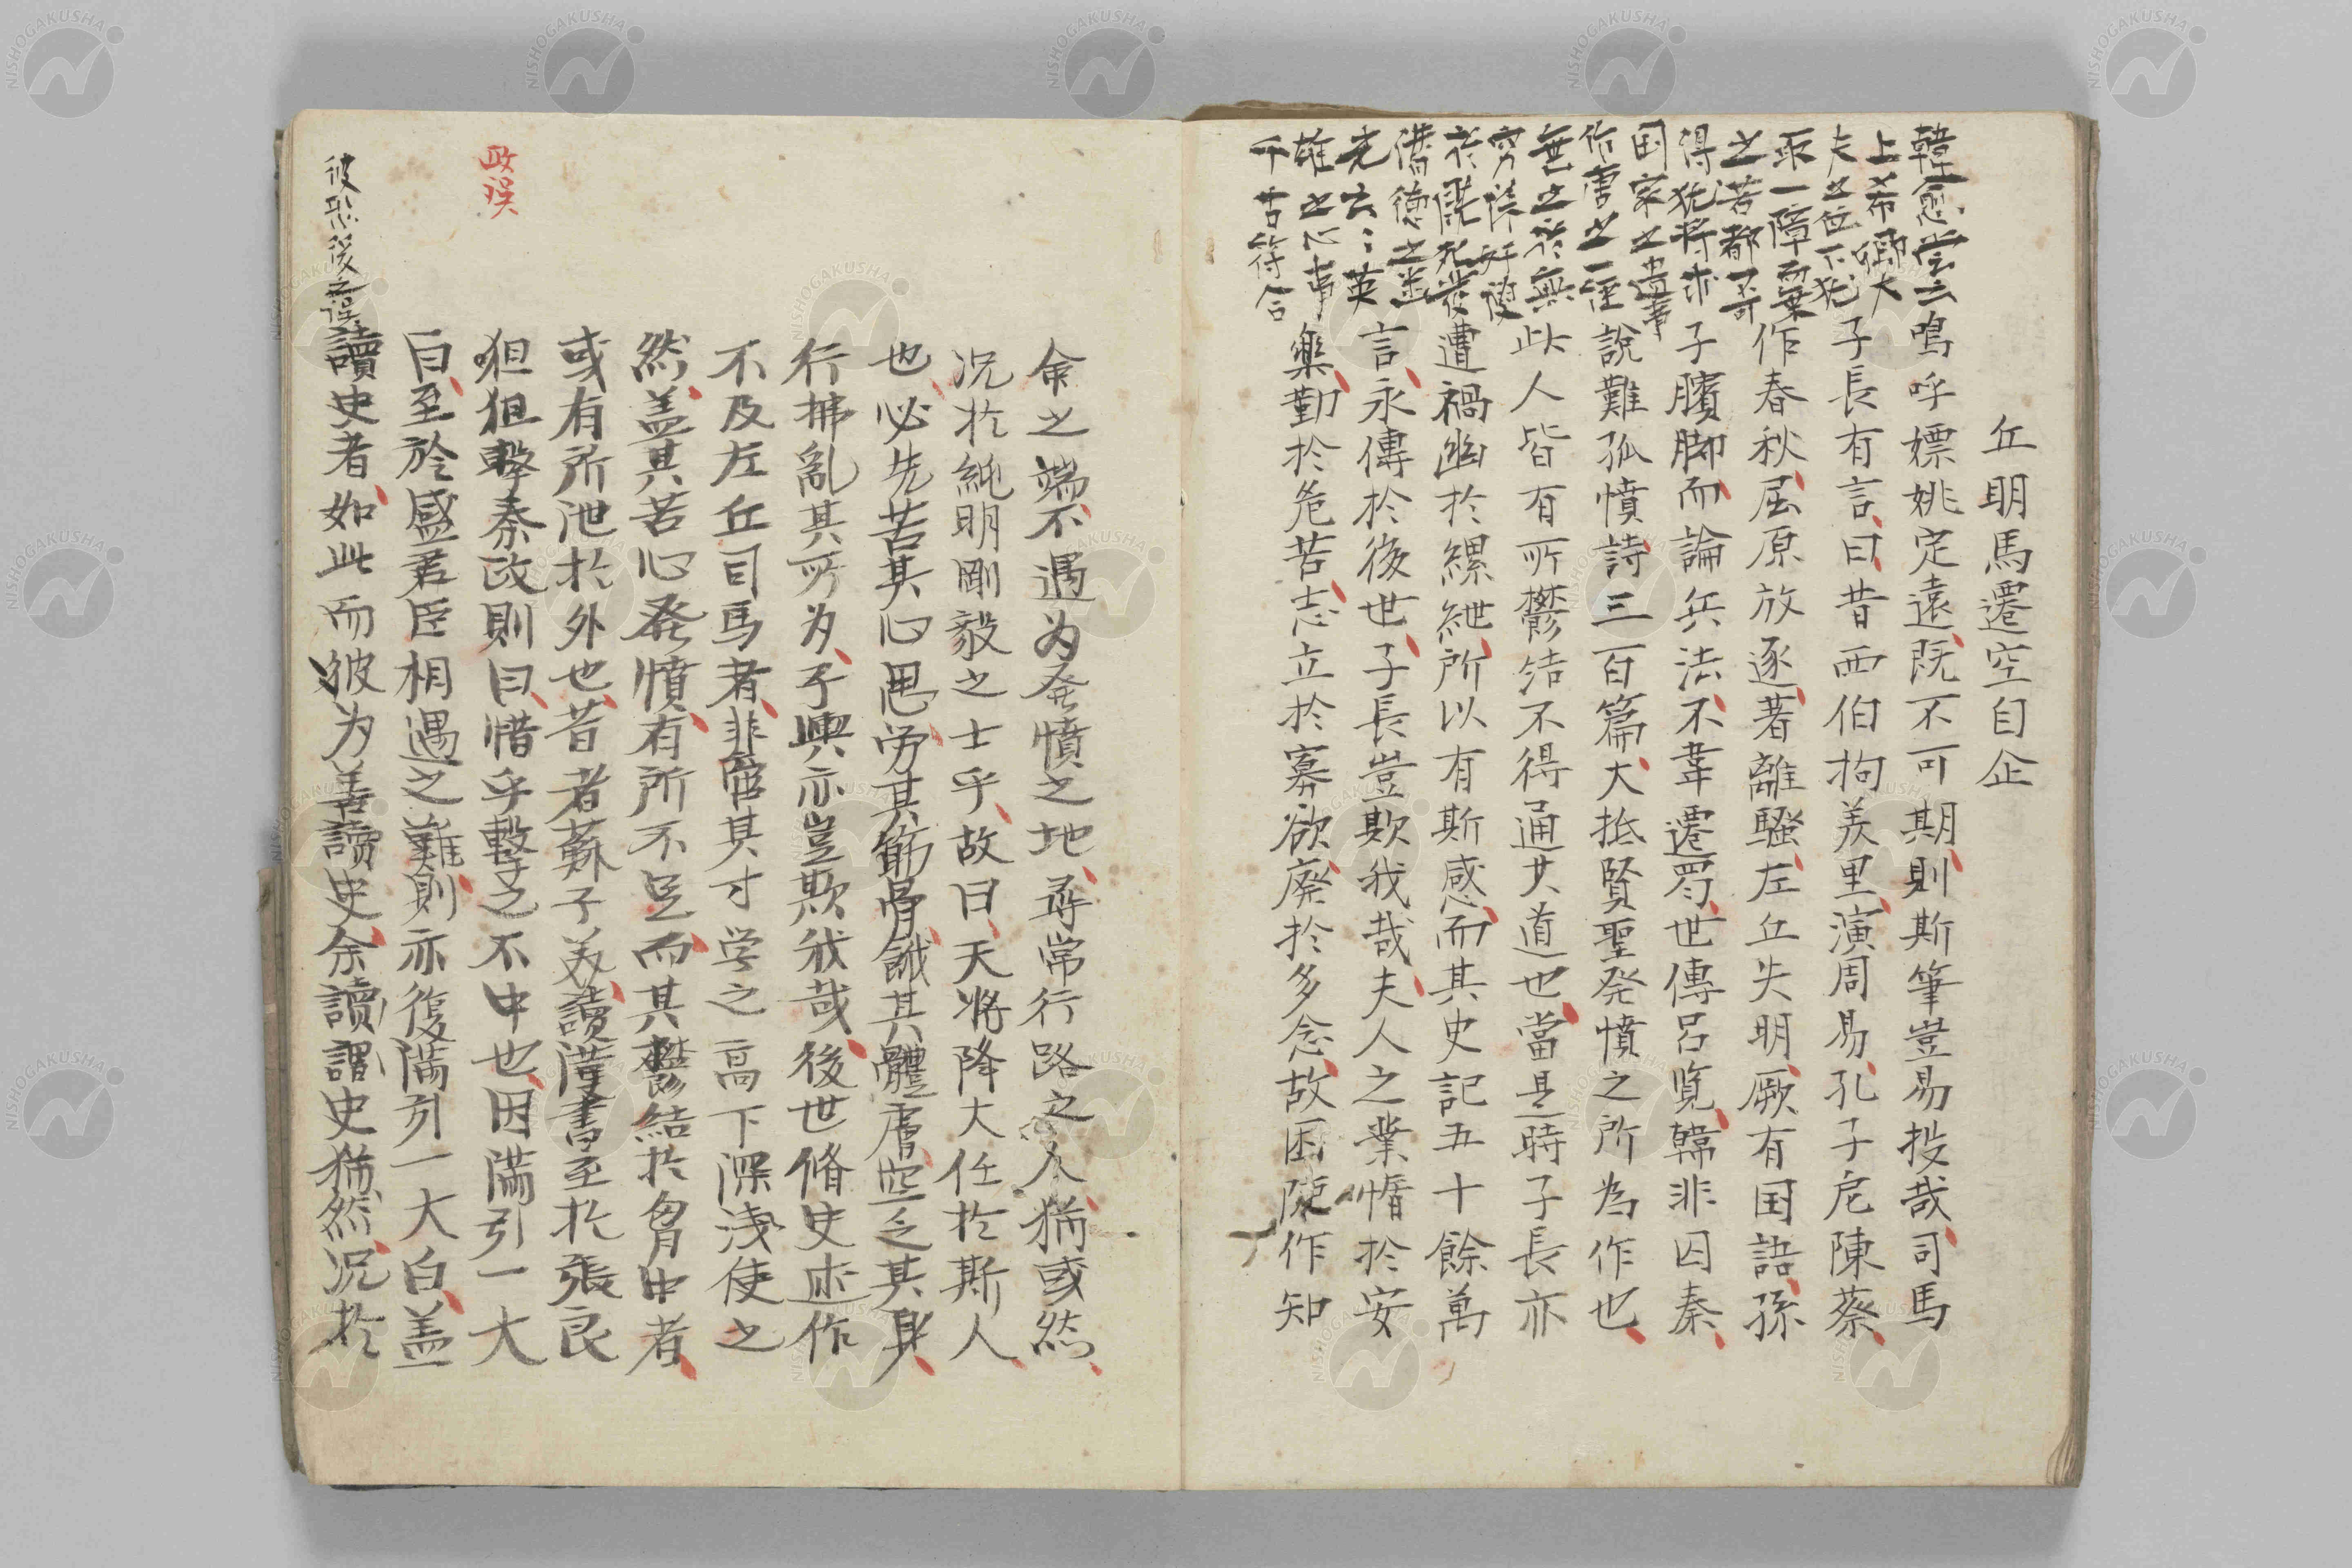 丘明馬遷空自企
鳴呼嫖姚定遠既不可期則斯筆豈易投哉司馬
子長有言曰昔西伯拘羑里演周易孔子戹陳蔡
作春秋屈原放逐著離騷左丘失明厥有国語孫
子臏脚而論兵法不韋遷蜀世傳呂覧韓非囚秦
説難孤憤詩三百篇大抵賢聖発憤之所為作也
此人皆有所鬱結不得通其道也當是時子長亦
遭禍幽於縲紲所以有斯感而其史記五十餘萬
言永傳於後世子長豈欺我哉夫人之業惰於安
樂勤於危苦志立於寡欲廃於多念故困陳作知
韓愈嘗云
上希卿大
夫之位下猶
取一障而乗
之若都不可
得猶将求
国家之遺事
作唐之一経
無之於無
窮誅奸諛
於既死發
潜徳之幽
光云々英
雄之心事
千古符合
命之端不遇為発憤之地尋常行路之人猶或然
况於純明剛毅之士乎故曰天将降大任於斯人
也必先苦其心思労其筋骨餓其體膚空乏其身
行拂亂其所為子輿亦豈欺我哉後世脩史述作
不及左丘司馬者非啻其才学之高下深浅使之
然盖其苦心発憤有所不足而其鬱結於胷中者
或有所泄於外也昔者蘇子美讀漢書至於張良
狙狙擊秦政則曰惜乎擊之不中也因満引一大
白至於盛君臣相遇之難則亦復満引一大白盖
讀史者如此而彼为善讀史余讀謂史猶然况於
政誤
彼恐後之誤